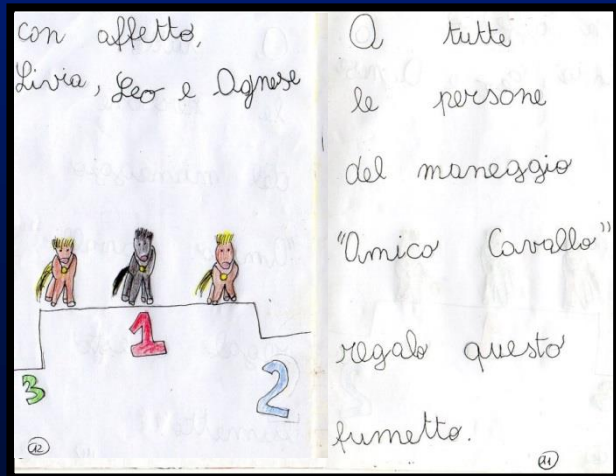 con affetto,
Livia, Leo e Agnese
1
2
3
12
A tutte
le persone
del maneggio
"Amico Cavallo"
regalo questo
fumetto.
11